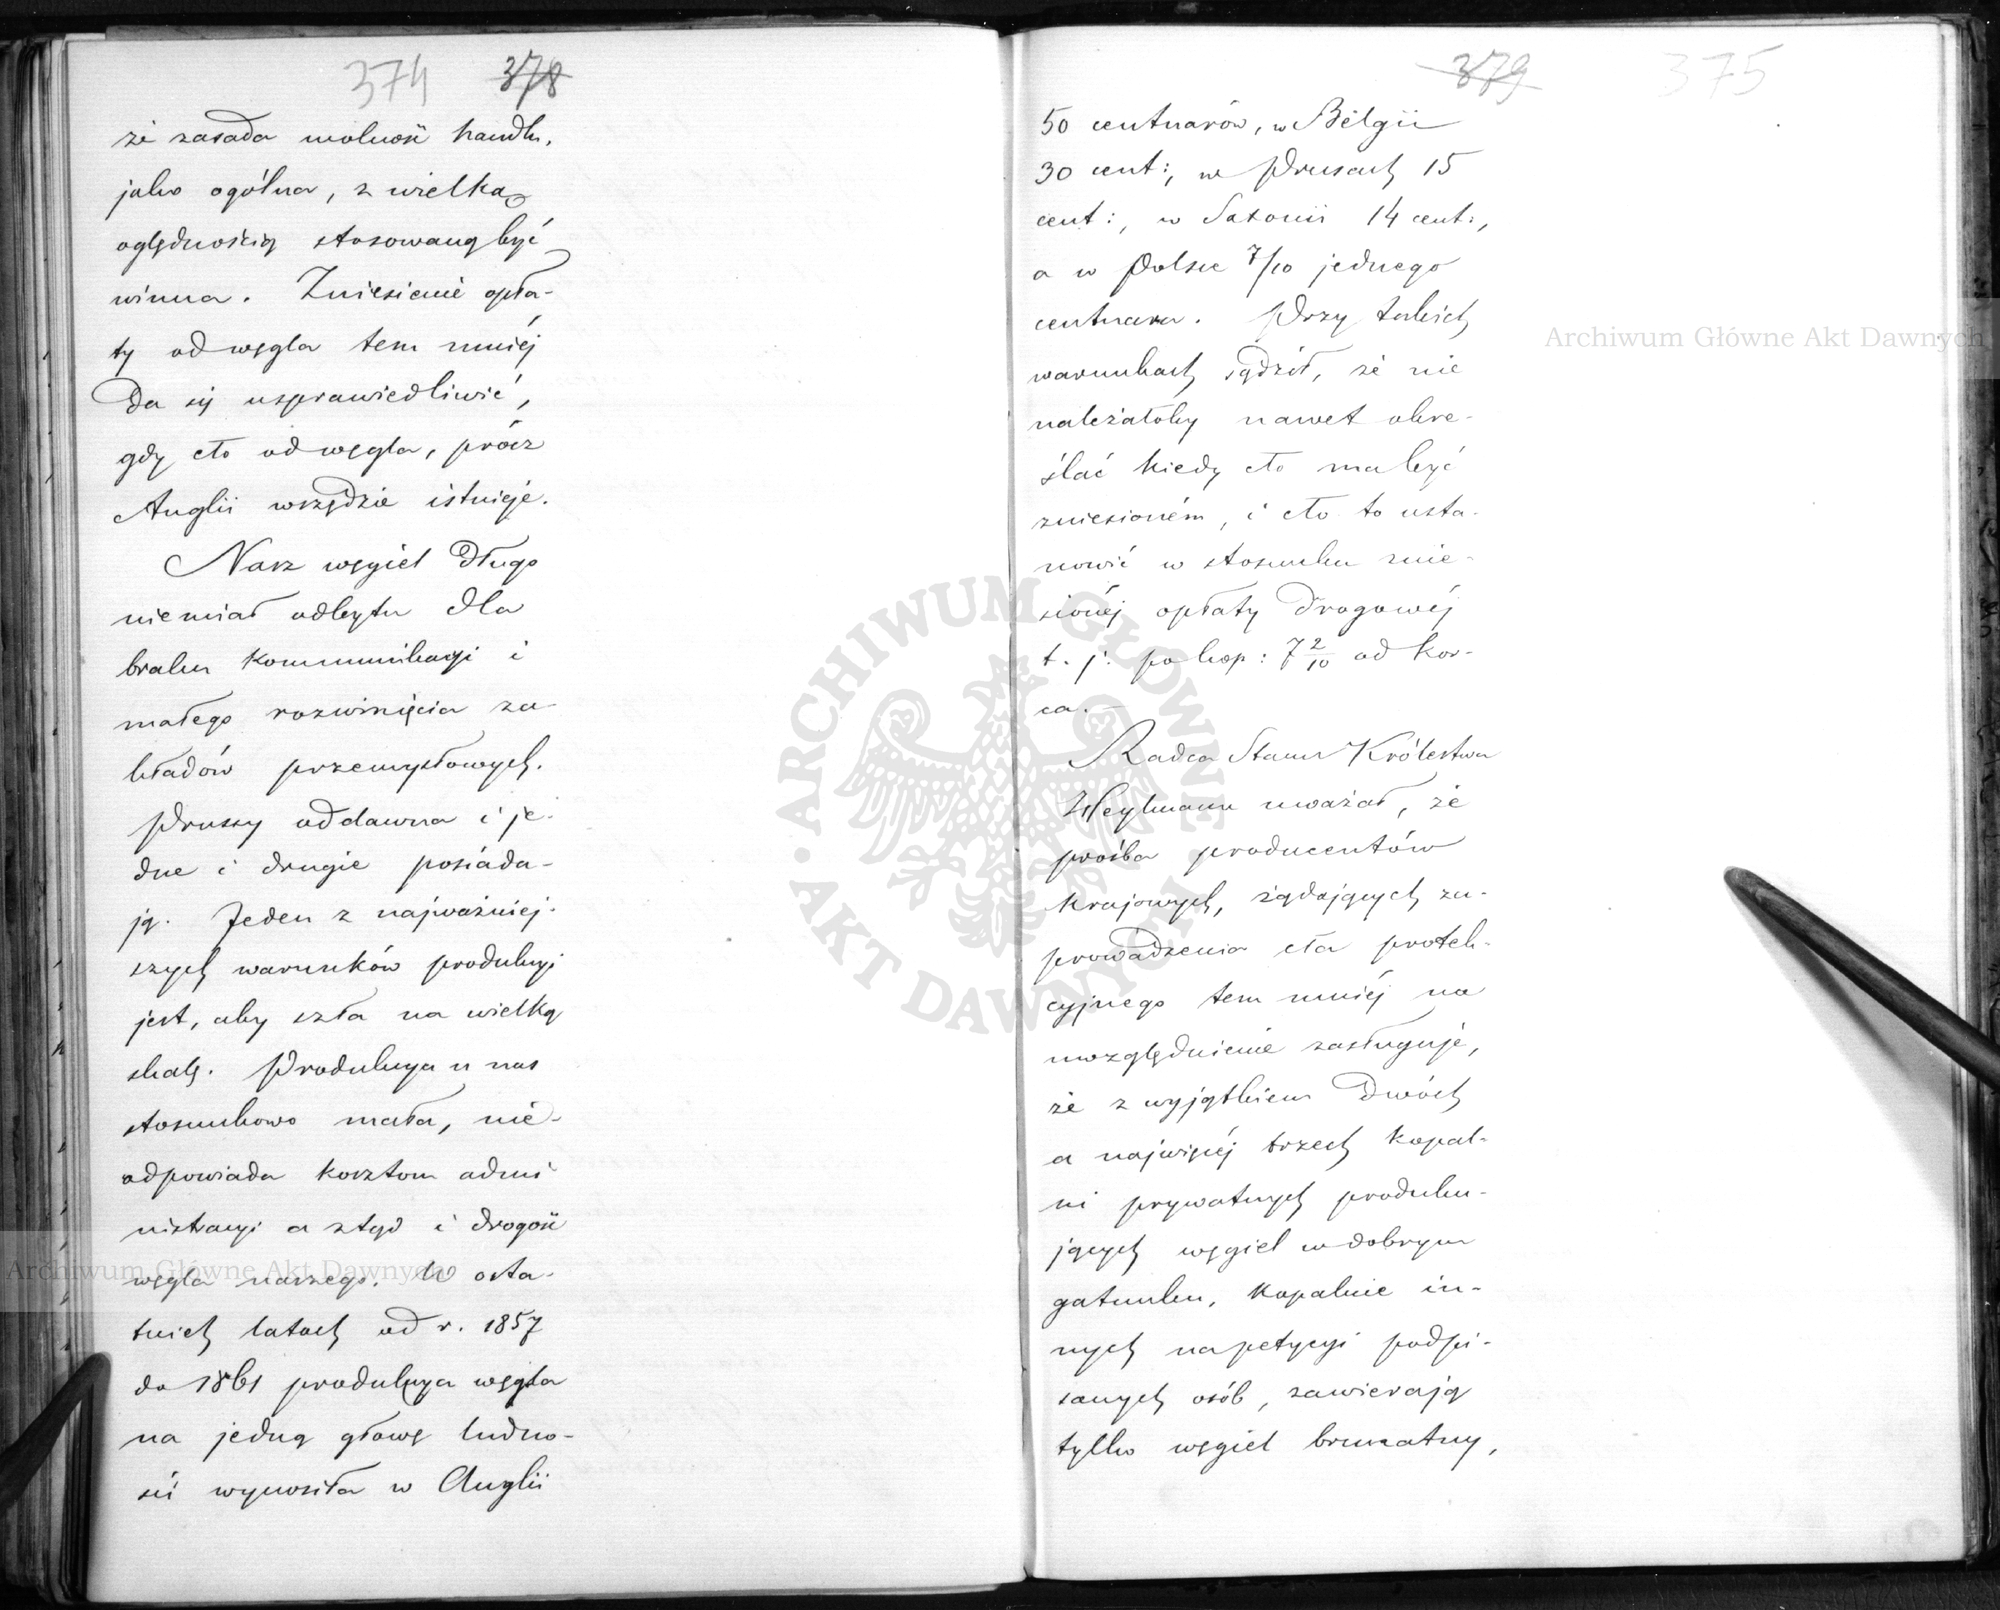 374 378
że zasada wolności handlu,
jako ogólna, z wielką
oględnością stosowaną być
winna. Zniesienie opła-
ty od węgla tem mniéj
da się usprawiedliwić,
gdy cło od węgla, prócz
Anglii wszędzie istnieje.
Nasz węgiel długo
niemiał odbytu dla
braku kommunikacyi i
małego rozwinięcia za-
kładów przemysłowych.
Prussy oddawna i je-
dne i drugie posiada-
ją. Jeden z najważniej-
szych warunków produkcyi
jest, aby szła na wielką
skalę. Produkcya u nas
stosunkowo mała, nie-
odpowiada kosztom admi
nistracyi a ztąd i drogość
węgla naszego. W osta-
tnich latach od r. 1857
do 1861 produkcya węgla
na jedną głowę ludno-
ści wynosiła w Anglii
379 375
50 centnarów, w Belgii
30 cent:, w Prusach 15
cent:, w Saxonii 14 cent:,
a w Polsce 7/10 jednego
centnara. Przy takich
warunkach sądził, że nie
należałoby nawet okre-
ślać kiedy cło ma być
zniesioném, i cło to usta-
nowić w stosunku znie-
sionéj opłaty drogowéj
t. j. po kop: 7 2/10 od kor-
ca.—
Radca Stanu Królestwa
Weylmann uważał, że
prośba producentów
krajowych, żądających za-
prowadzenia cła protek-
cyjnego tem mniéj na
uwzględnienie zasługuje,
że z wyjątkiem dwóch
a najwięcéj trzech kopal-
ni prywatnych produku-
jących węgiel w dobrym
gatunku, kopalnie in-
nych na petycyi podpi-
sanych osób, zawierają
tylko węgiel brunatny,
Archiwum Główne Akt Dawnych
Archiwum Główne Akt Dawnych
ARCHIWUM GŁÓWNE
AKT DAWNYCH